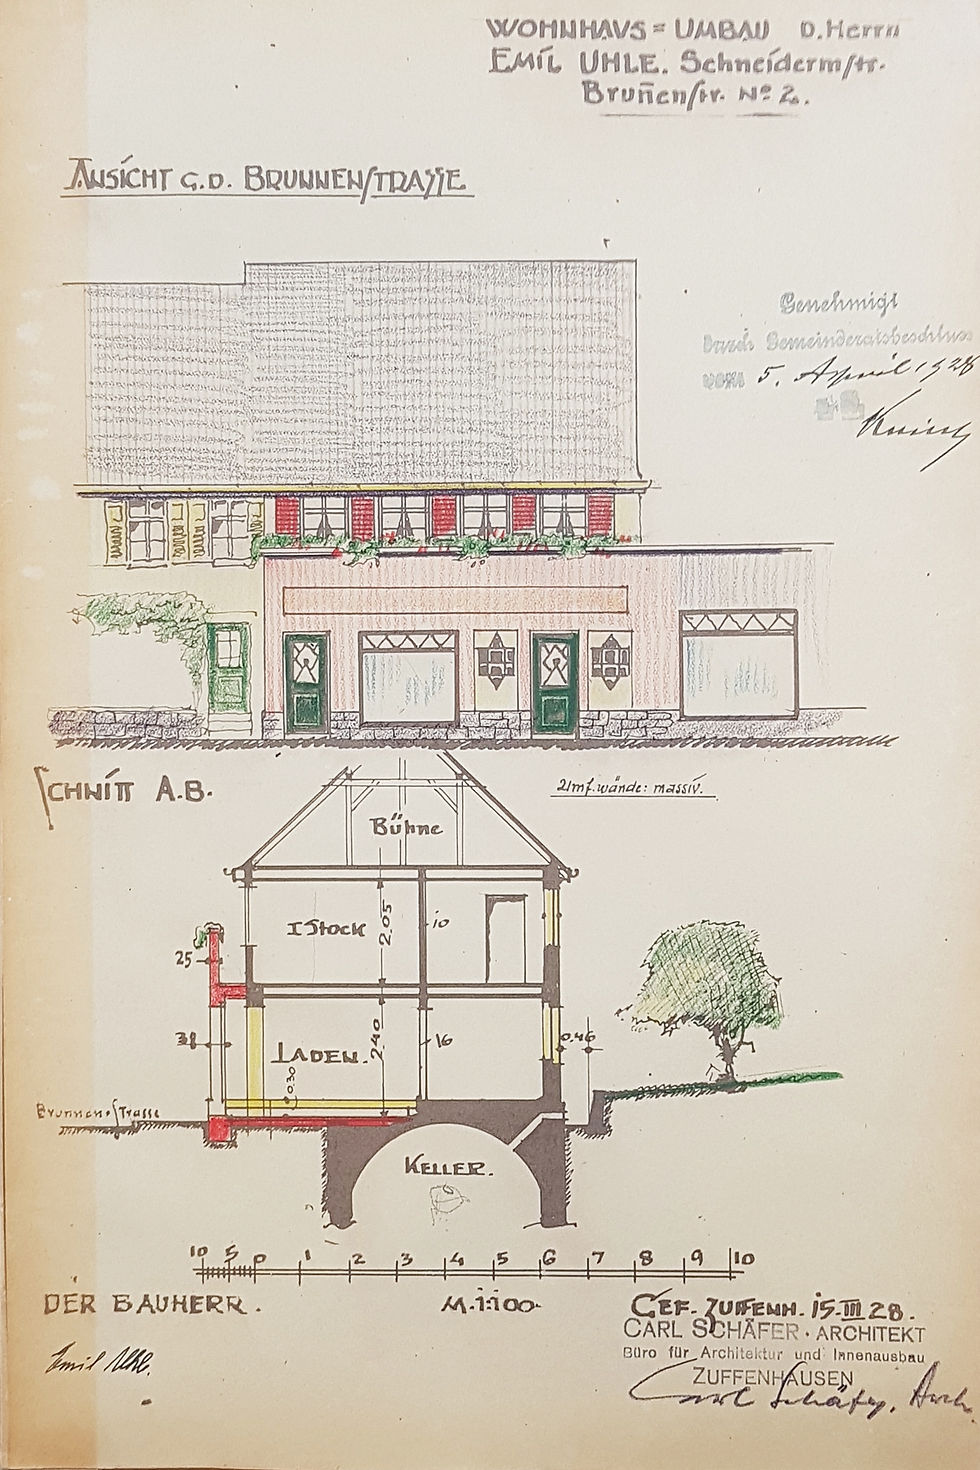 WOHNHAVS = UMBAU D. Herrn
EMIL UHLE. Schneidermstr.
Bruñenstr. No 2.
ANSICHT G.D. BRUNNENSTRASSE
Genehmigt
Durch Gemeinderatsbeschluss
vom 5. April 1928
SCHNITT A.B.
Umf.wände: massiv.
Bühne
I Stock
2.05
10
25
38
LADEN.
2.40
16
0.46
0.30
Brunnenstrasse
KELLER.
10 5 0 1 2 3 4 5 6 7 8 9 10
DER BAUHERR.
M.1:100.
GEF. ZUFFENH. 15.III 28.
CARL SCHÄFER · ARCHITEKT
Büro für Architektur und Innenausbau
ZUFFENHAUSEN
Emil Uhle.
Carl Schäfer, Arch.